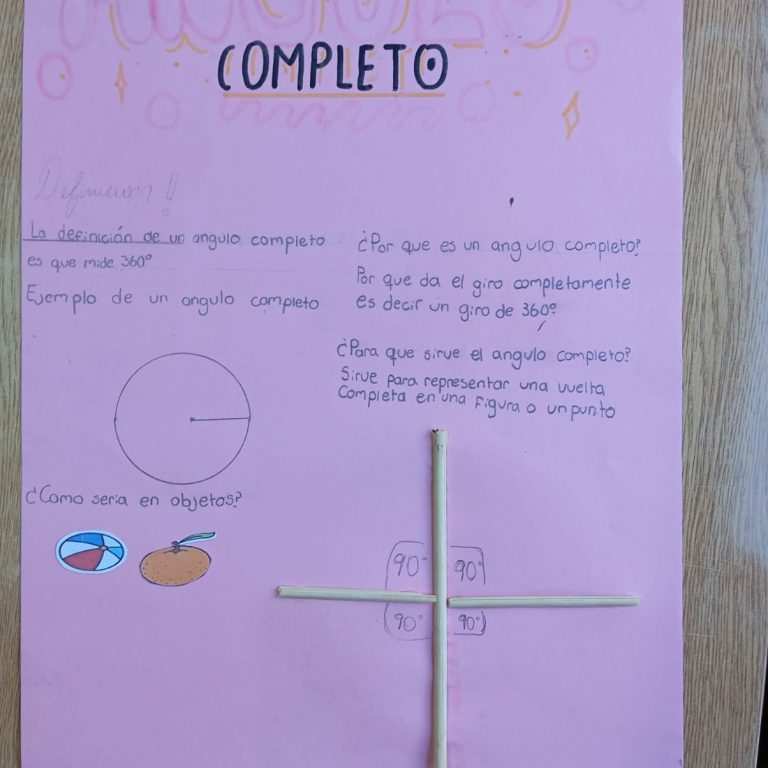 ANGULO
COMPLETO
Definicion !!
La definición de un angulo completo
es que mide 360°
Ejemplo de un angulo completo
¿Como seria en objetos?
¿Por que es un angulo completo?
Por que da el giro completamente
es decir un giro de 360°
¿Para que sirve el angulo completo?
Sirve para representar una vuelta
Completa en una figura o un punto
90° 90°
90° 90°